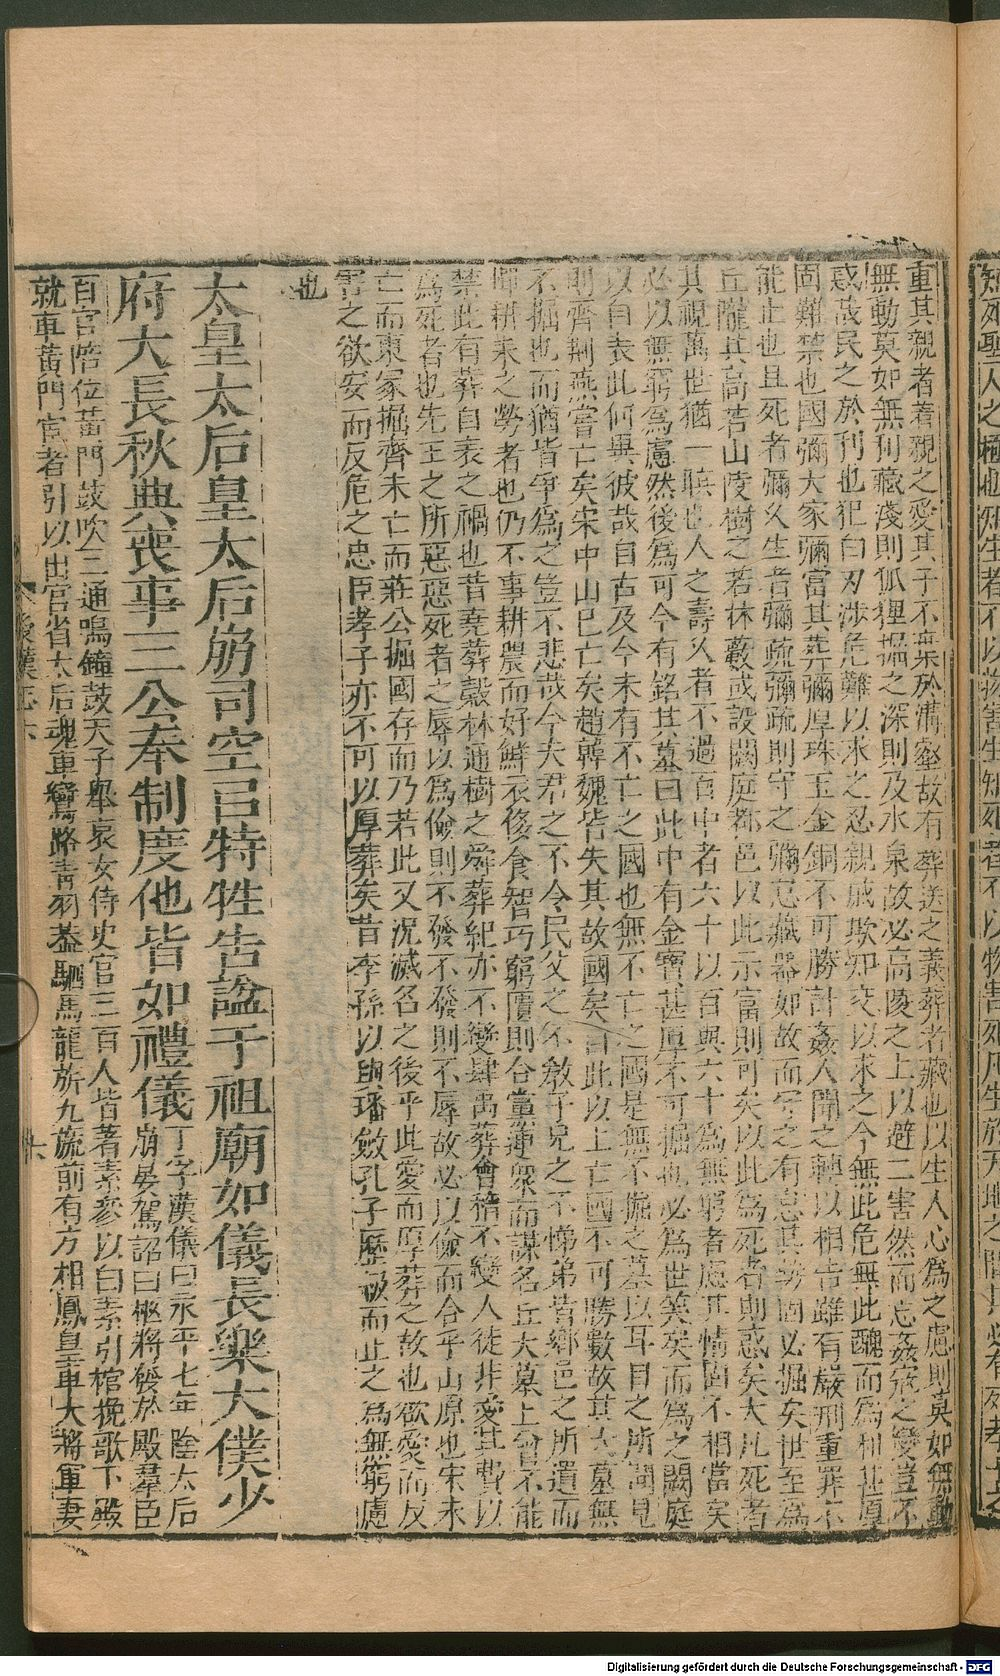 重其親者若親之愛其子不棄於溝壑故有葬送之義葬者藏也以生人心為之慮則莫如無動
無動莫如無利藏淺則狐狸掘之深則及水泉故必高陵之上以避二害然而忘姦寇之變豈不
惑哉民之於利也犯白刃涉危難以求之忍親戚欺知交以求之今無此危無此醜而為利甚厚
固難禁也國彌大家彌富其葬彌厚珠玉金銅不可勝計姦人聞之轉以相告雖有嚴刑重罪不
能止也且死者彌久生者彌疏彌疏則守之彌怠藏器如故而守之有怠其勢固必掘矣世至為
丘隴其高若山陵樹之若林藪或設闕庭都邑以此示富則可矣以此為死者則惑矣大凡死者
其視萬世猶一瞚也人之壽久者不過百中者六十以百與六十為無窮者慮其情固不相當矣
必以無窮為慮然後為可今有銘其墓曰此中有金寶甚厚不可掘也必為世笑矣而為之闕庭
以自表此何異彼哉自古及今未有不亡之國也無不亡之國是無不掘之墓以耳目之所聞見
則齊荆燕嘗亡矣宋中山已亡矣趙韓魏皆失其故國矣自此以上亡國不可勝數故其大墓無
不掘也而猶皆爭為之豈不悲哉今夫君之不令民父之不教子兄之不悌弟皆鄉邑之所遺而
憚耕耒之勞者也仍不事耕農而好鮮衣侈食智巧窮匱則合黨連衆而謀名丘大墓上曾不能
禁此有葬自表之禍也昔堯葬穀林通樹之舜葬紀亦不變肆禹葬會稽不變人徒非愛其費以
為死者也先王之所惡惡死者之辱以為儉則不發不發則不辱故必以儉而合乎山原也宋未
亡而東冢掘齊未亡而莊公掘國存而乃若此又况滅名之後乎此愛而厚葬之故也欲愛而反
害之欲安而反危之忠臣孝子亦不可以厚葬矣昔季孫以璵璠斂孔子歷級而止之為無窮慮
也
太皇太后皇太后崩司空以特牲告謚于祖廟如儀長樂太僕少
府大長秋典喪事三公奉制度他皆如禮儀
丁孚漢儀曰永平七年陰太后
崩晏駕詔曰柩將發於殿羣臣
百官陪位黃門鼓吹三通鳴鐘鼓天子舉哀女侍史官三百人皆著素參以白素引棺挽歌下殿
就車黃門宦者引以出宮省太后魂車鸞路青羽葢駟馬龍旂九旒前有方相鳳皇車大將軍妻
後漢志六
Digitalisierung gefördert durch die Deutsche Forschungsgemeinschaft - DFG